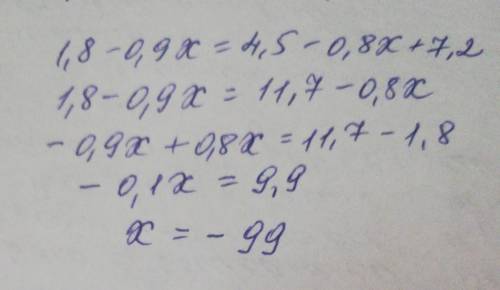 1,8 - 0,9x = 4,5 - 0,8x + 7,2
1,8 - 0,9x = 11,7 - 0,8x
- 0,9x + 0,8x = 11,7 - 1,8
- 0,1x = 9,9
x = - 99